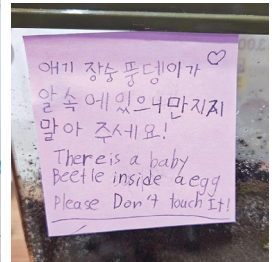 애기 장숭 풍뎅이가
알 속에 있으니 만지지
말아 주세요!
There is a baby
Beetle inside a egg
Please Don't touch It!